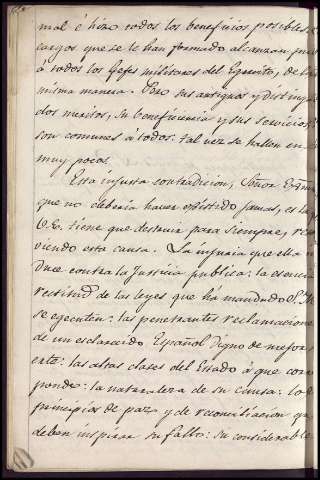 mal é hizo todos los beneficios posibles
cargos que se le han formado alcanzan
á todos los Gefes militares del Egercito, de
misma manera. Pero sus antiguos y distingui
dos meritos, su beneficencia y sus servicios
son comunes á todos: tal vez se hallen en
muy pocos.
Esta injusta contradicion, Señor Exmo
que no deberia haver existido jamas, es la
V.E. tiene que destruir para siempre, resol
viendo esta causa. La injuria que ella in
duce contra la Justicia publica: la esencia
rectitud de las leyes que ha mandado S.M.
se egecuten: las penetrantes reclamaciones
de un esclarecido Español digno de mejor
erte: las altas clases del Estado á que corres
ponde: la naturaleza de su causa: los
principios de paz y de reconciliacion que
deben inspirar su fallo: su considerable